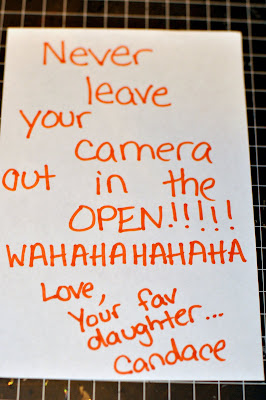 Never
leave
your
camera
out in the
OPEN!!!!!
WAHAHAHAHAHA
Love,
Your fav
daughter...
Candace